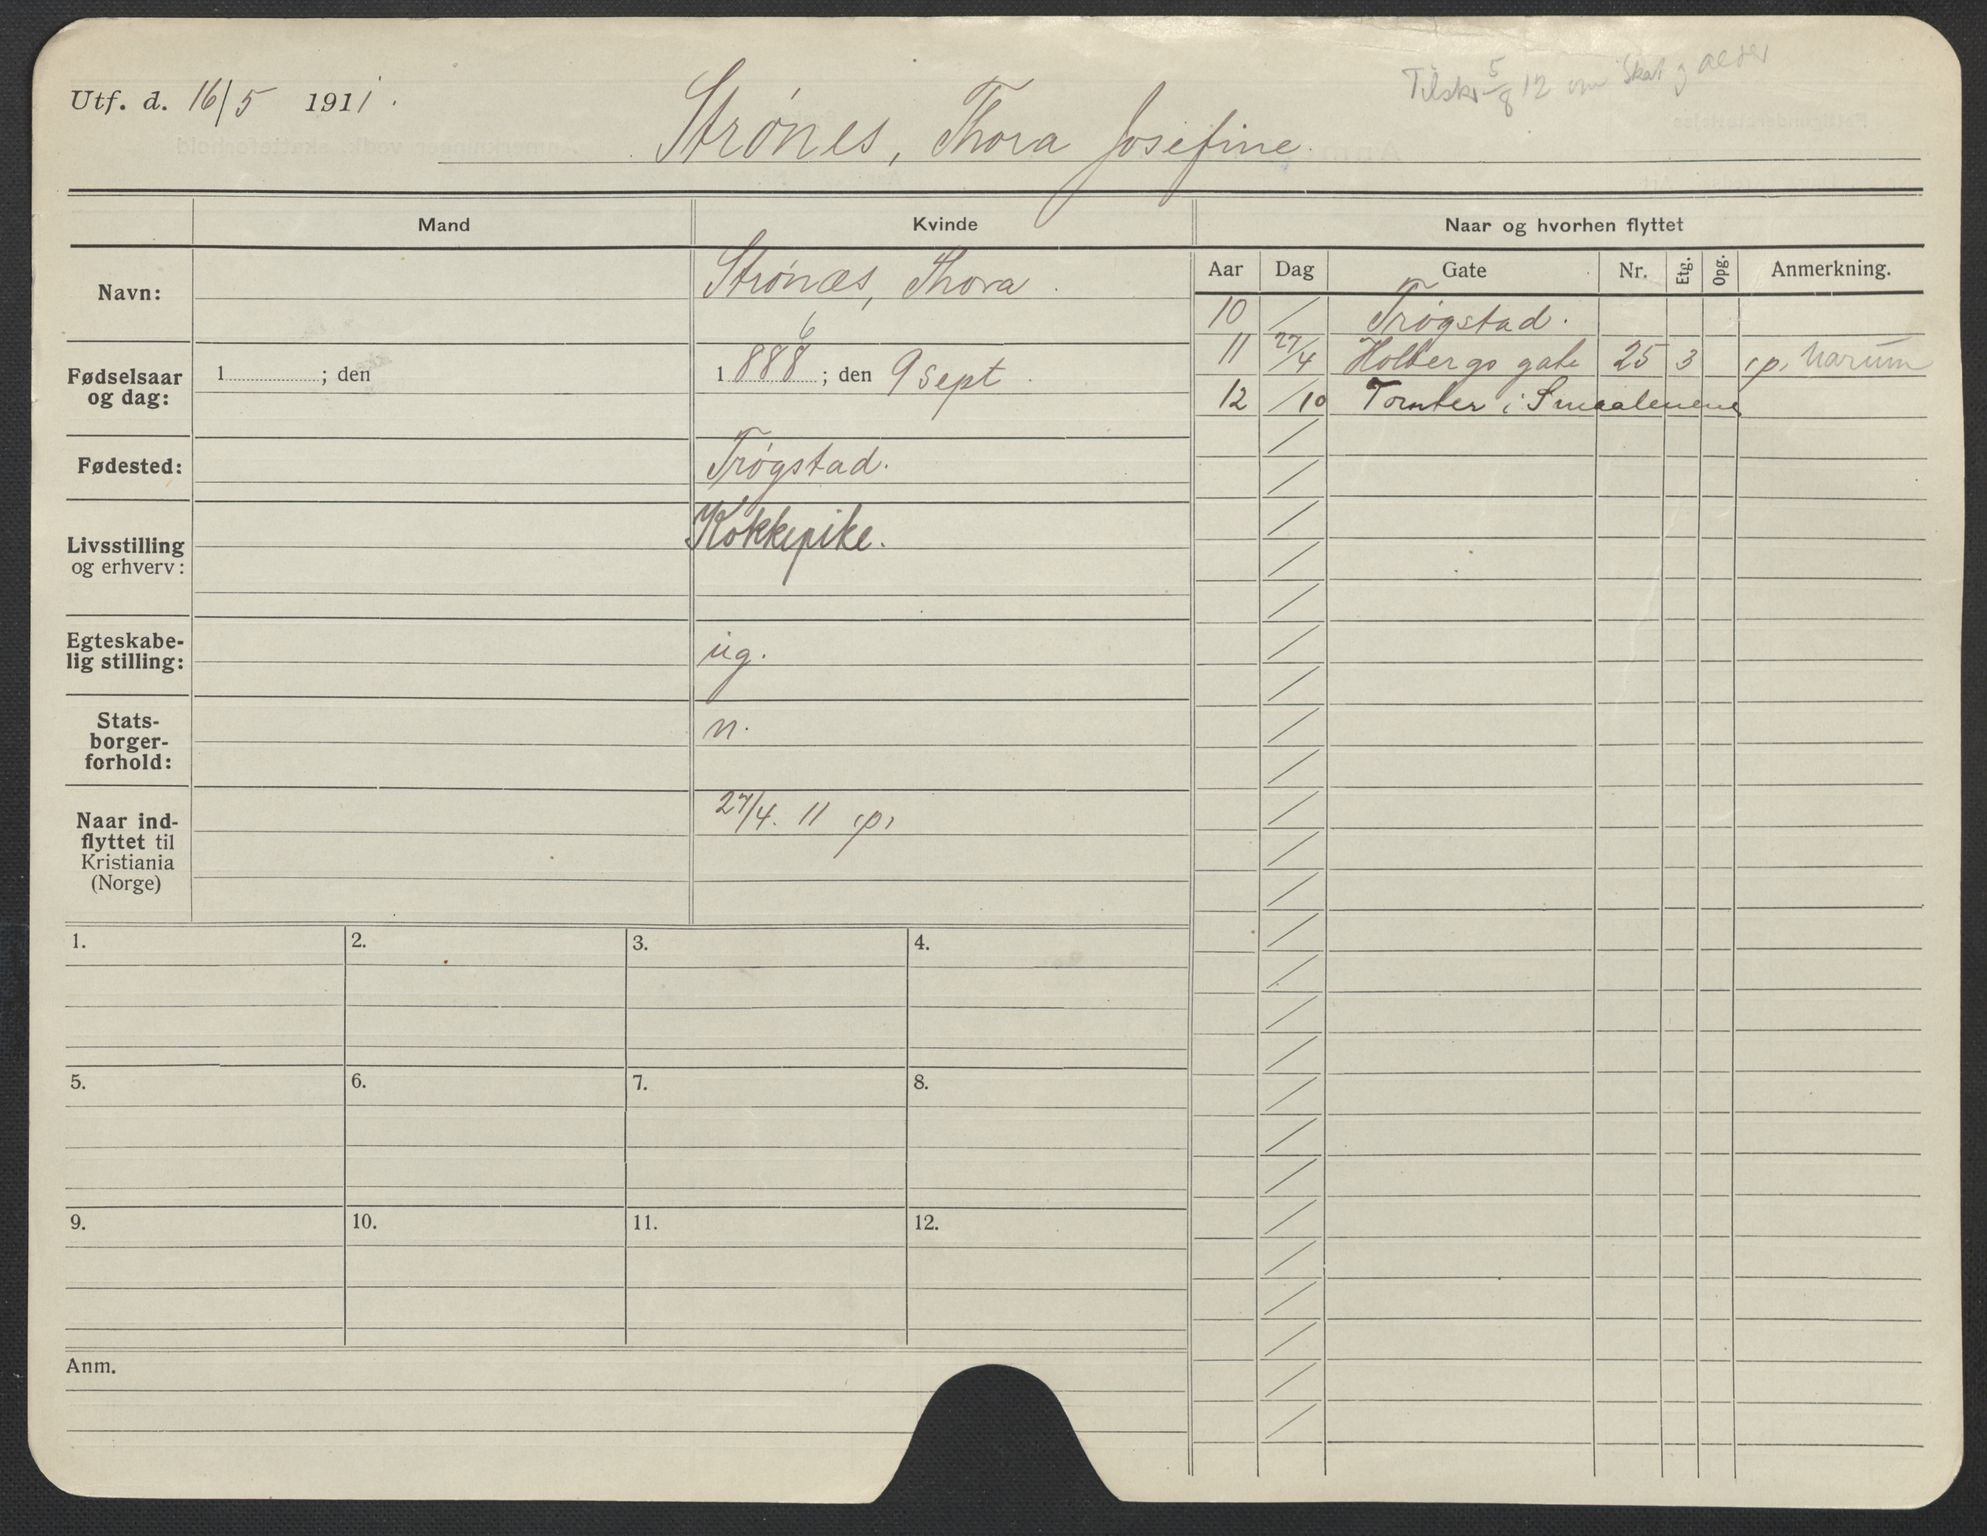 Utf. d. 16/5 1911.
Tilskr 5/8 12 om Skat
Strønes, Thora Josefine.
Mand
Kvinde
Naar og hvorhen flyttet
Aar Dag Gate Nr. Etg. Opg. Anmerkning.
Navn:
Strønæs, Thora.
10 / Trøgstad.
11 27/4 Holbergs gate 25 3 p,
12 /10 Tomter i Smaalenene
Fødselsaar
og dag:
1 ; den
6
1 888 ; den 9 sept.
Fødested:
Trøgstad.
Livsstilling
og erhverv:
Kokkepike.
Egteskabe-
lig stilling:
ug.
Stats-
borger-
forhold:
n.
Naar ind-
flyttet til
Kristiania
(Norge)
27/4. 11 p,
1. 2. 3. 4.
5. 6. 7. 8.
9. 10. 11. 12.
Anm.